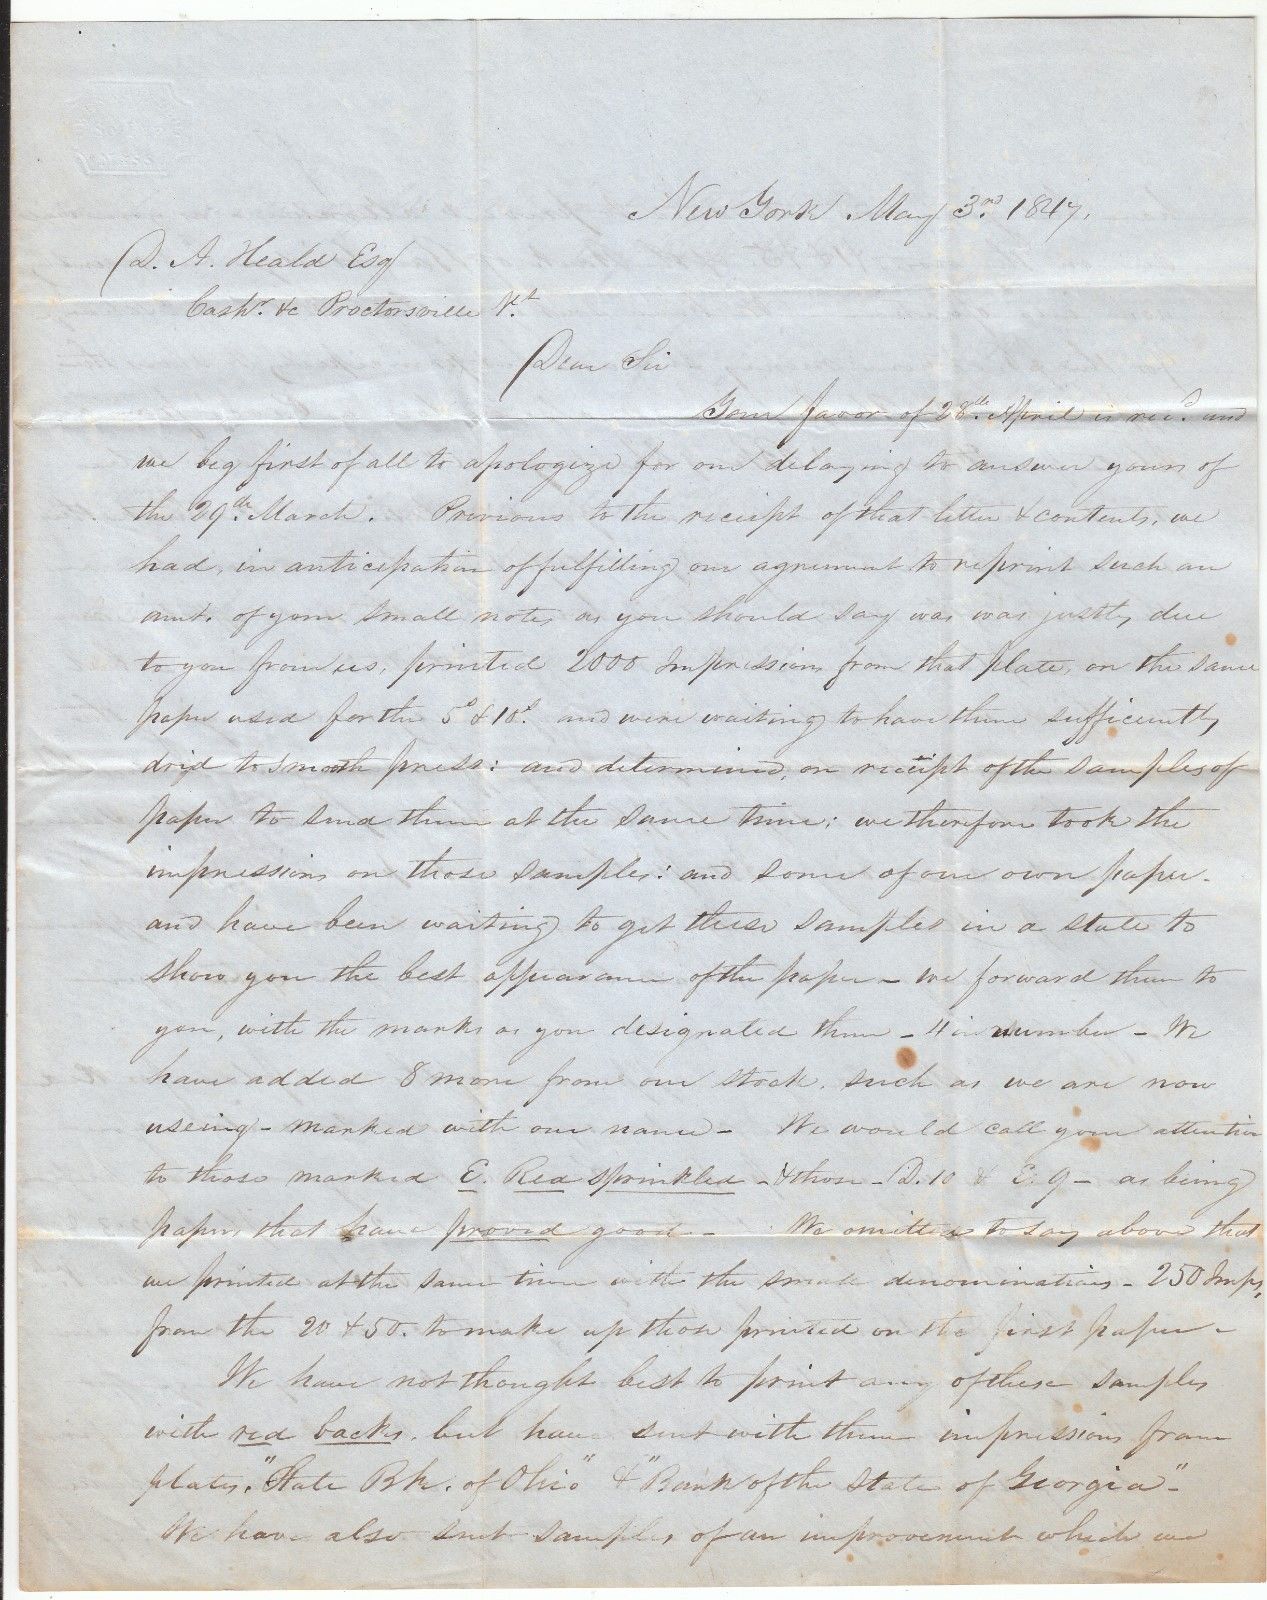 New York May 3rd. 1847.
D. A. Heald Esq
Cashr. &c Proctorsville Vt.
Dear Sir
Your favor of 28th. April is rec'd. and
we beg first of all to apologize for our delaying to answer yours of
the 29th. March. Previous to the receipt of that letter & contents, we
had, in anticipation of fulfilling our agreement to reprint such an
amt. of your small notes as you should say was was justly due
to you from us, printed 2000 Impressions from that plate, on the same
paper used for the 5s & 10s. and were waiting to have them sufficiently
dried to smooth press: and determined, on receipt of the samples of
paper to send them at the same time; we therefore took the
impressions on those samples: and some of our own paper.
and have been waiting to get these samples in a state to
show you the best appearance of the paper - we forward them to
you, with the marks as you designated them - 4 in number - We
have added 8 more from our stock. such as we are now
useing - marked with our name - We would call your attention
to those marked E. Red sprinkled - & those - D. 10 & E. 9 - as being
papers that have proved good - We omitted to say above that
we printed at the same time with the small denominations - 250 Imps,
from the 20 & 50. to make up those printed on the first paper -
We have not thought best to print any of these samples
with red backs. but have sent with them impressions from
plates, "State Bk. of Ohio" & "Bank of the State of Georgia" -
We have also sent samples of an improvement which we